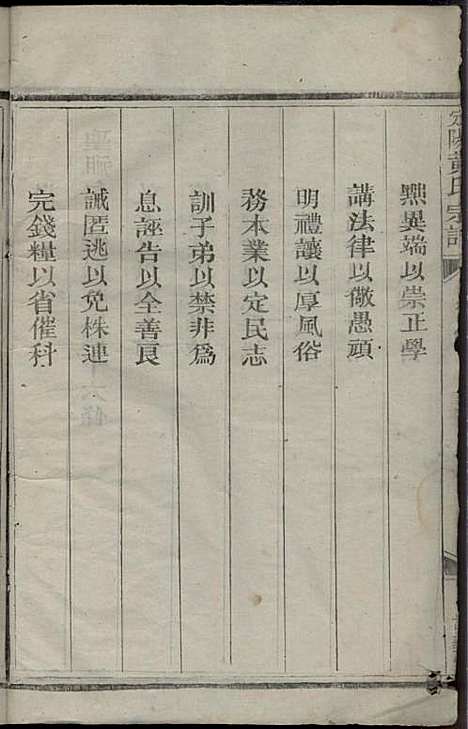 黜異端以崇正學
講法律以儆愚頑
明禮讓以厚風俗
務本業以定民志
訓子弟以禁非為
息誣告以全善良
誡匿逃以免株連
完錢糧以省催科